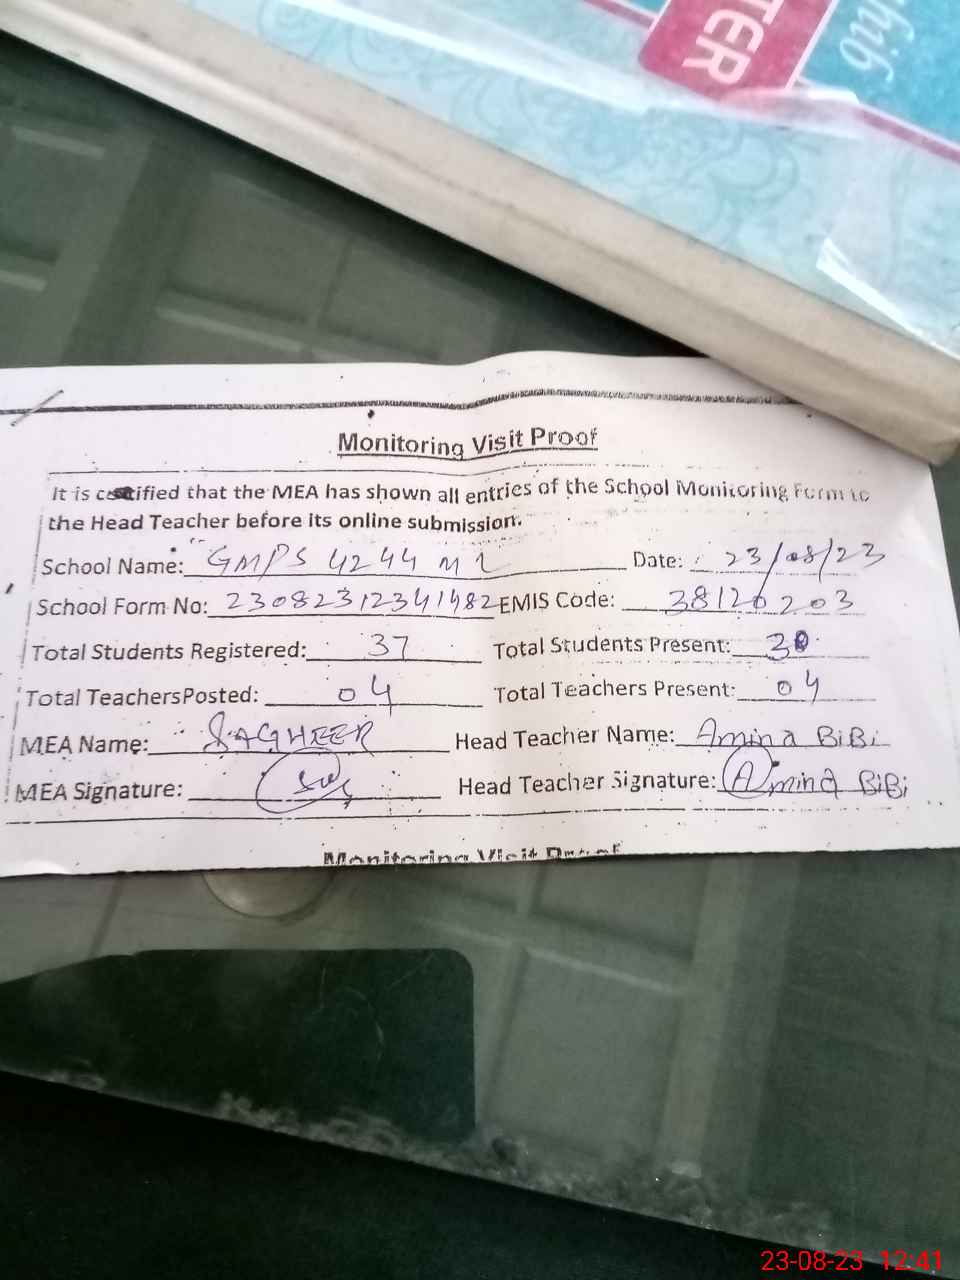 TER
Monitoring Visit Proof
It is certified that the MEA has shown all entries of the School Monitoring Form to
the Head Teacher before its online submission.
School Name: GMPS 4244 ML Date: 23/08/23
School Form No: 23082312341482 EMIS Code: 38120203
Total Students Registered: 37 Total Students Present: 30
Total TeachersPosted: 04 Total Teachers Present: 04
MEA Name: SAGHEER Head Teacher Name: Amina BiBi
MEA Signature: Head Teacher Signature: Amina BiBi
Monitoring Visit Proof
23-08-23 12:41